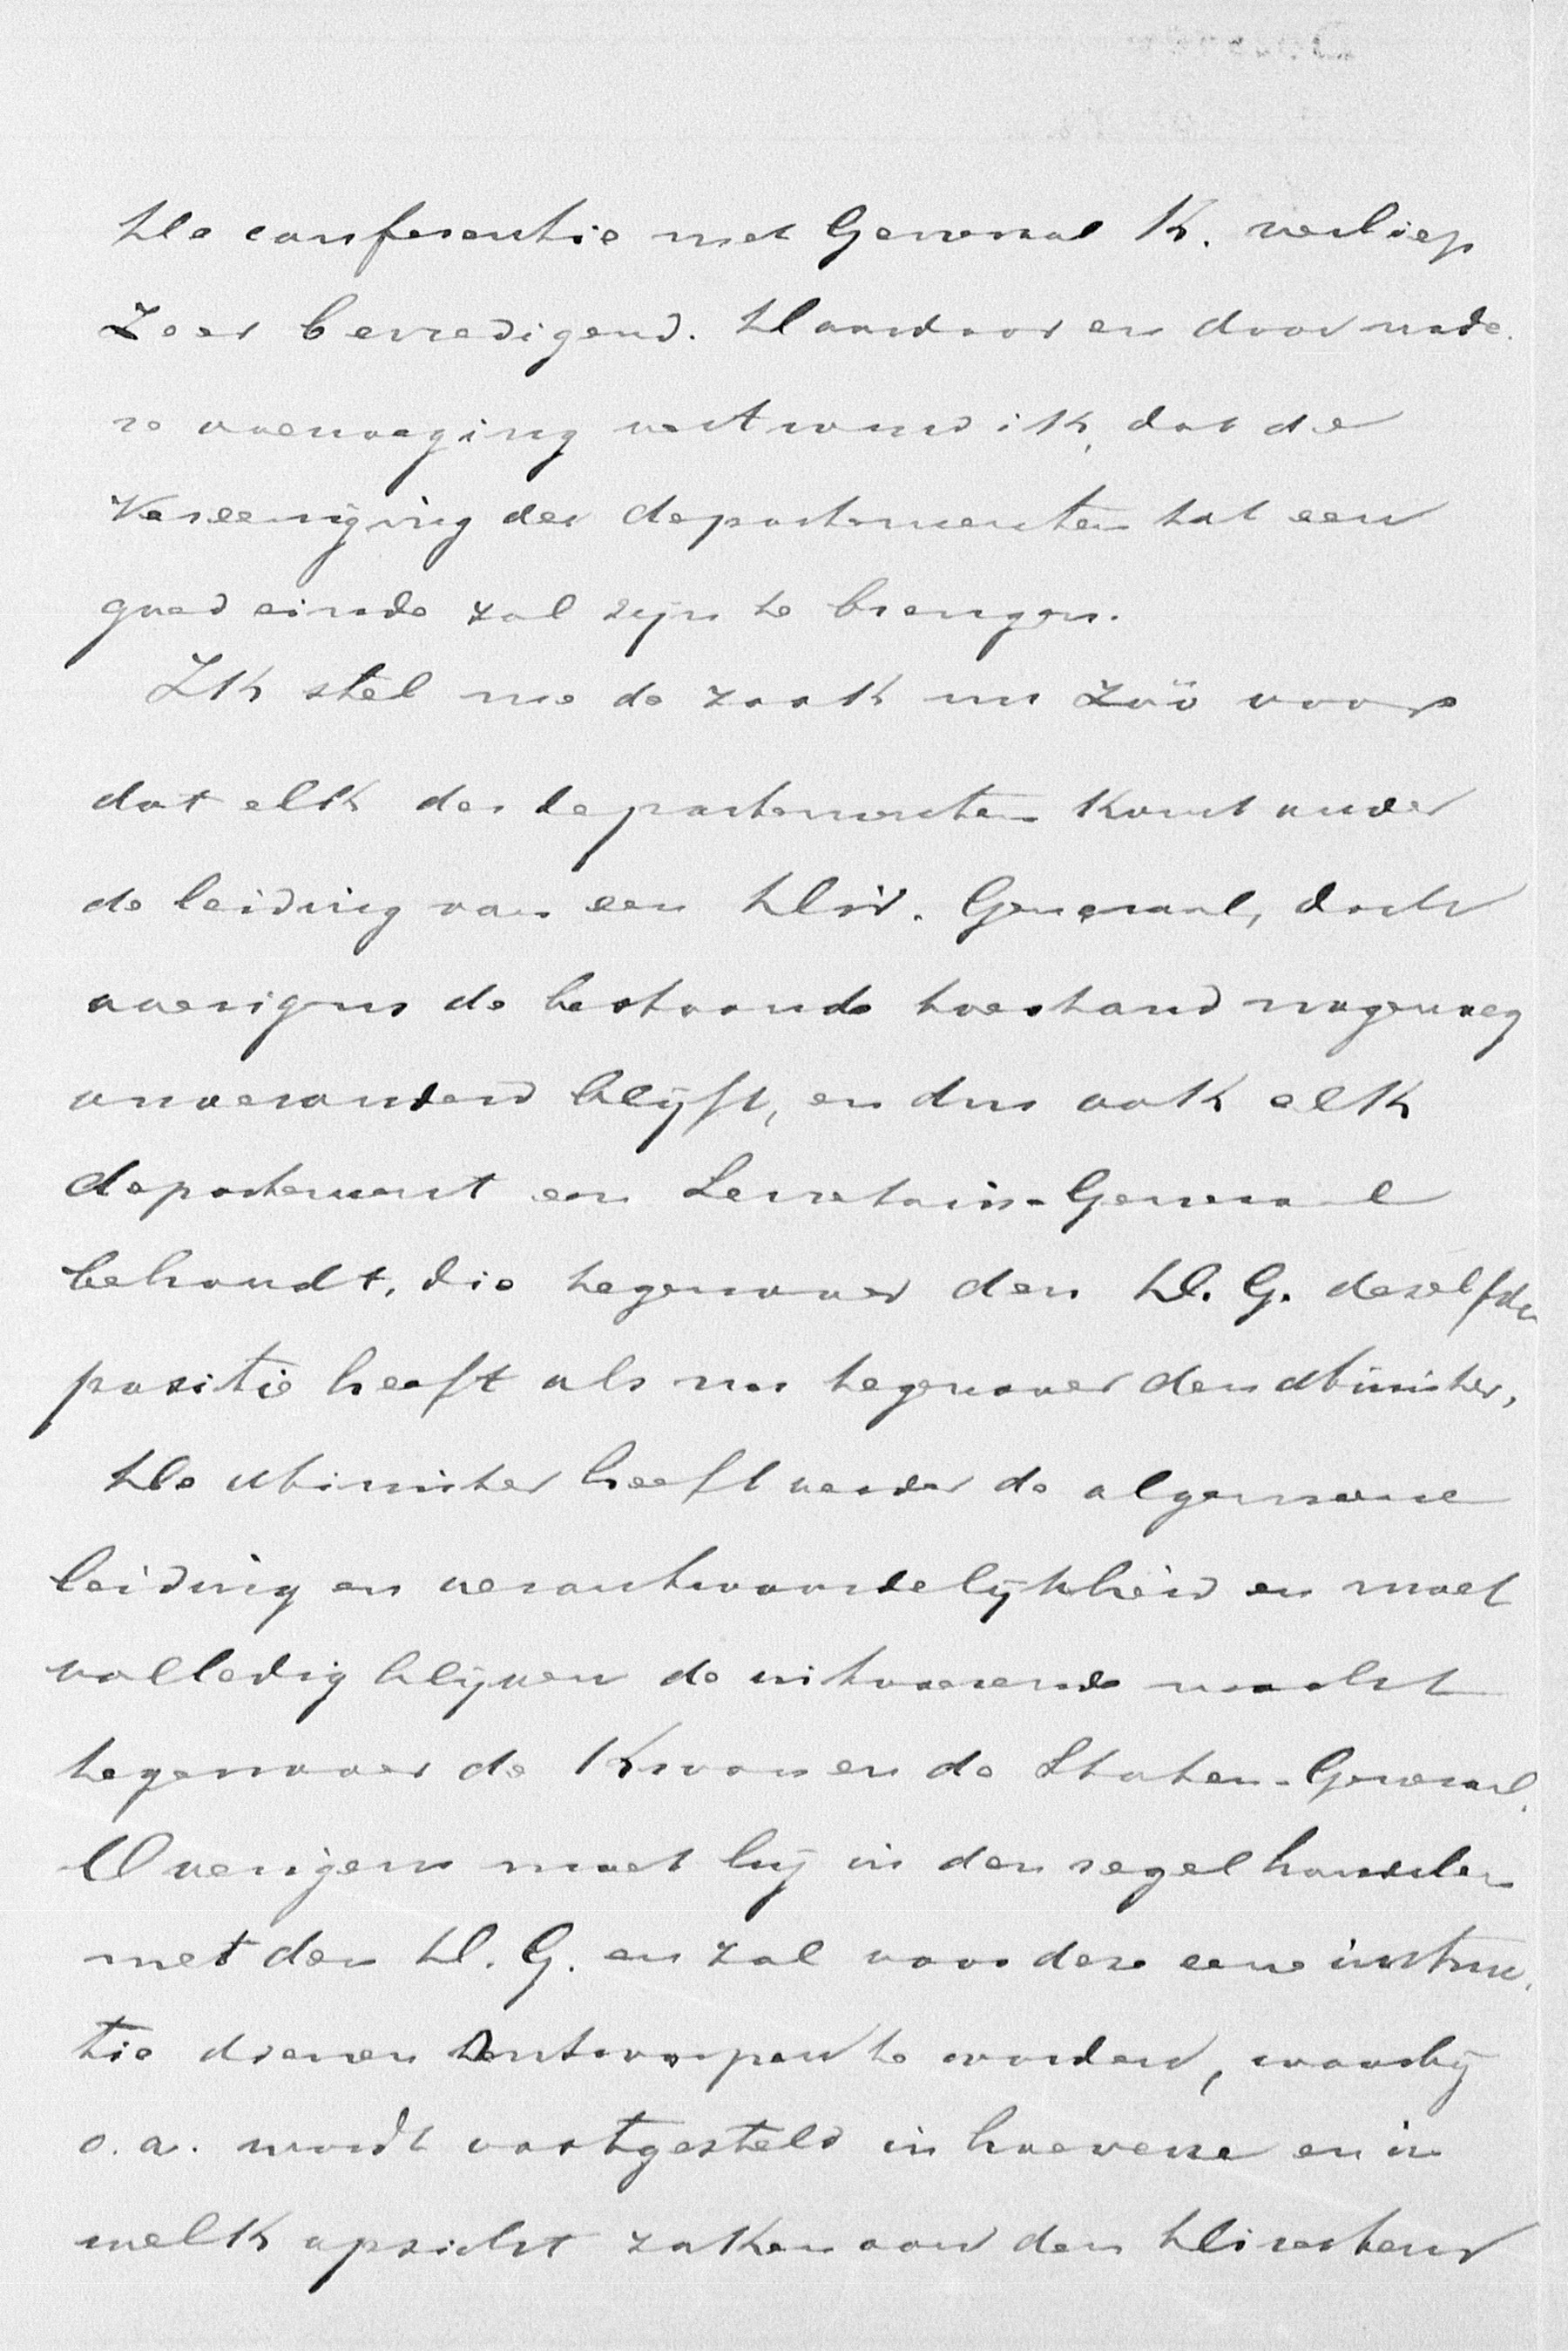 De conferentie met Generaal K. verliep
Zeer bevredigend. Daardoor en door nade-
re overweging vertrouw ik, dat de
Vereeniging der departementen tot een
goed einde zal zijn te brengen.
Ik stel me de zaak nu zóó voor
dat elk der departementen komt onder
de leiding van een Dir. Generaal, doch
overigens de bestaande toestand nagenoeg
onveranderd blijft, en dus ook elk
departement een Secretaris-Generaal
behoudt, die tegenover den D. G. dezelfde
positie heeft als nu tegenover den Minister,
De Minister heeft verder de algemeene
leiding en verantwoordelijkheid en moet
volledig blijven de uitvoerende macht
tegenover de Kroon en de Staten-Generaal.
Overigens moet hij in den regel handelen
met den D. G. en zal voor deze eene instruc-
tie dienen ontworpen te worden, waarbij
o.a. wordt vastgesteld in hoeverre en in
welk opzicht zaken aan den Directeur